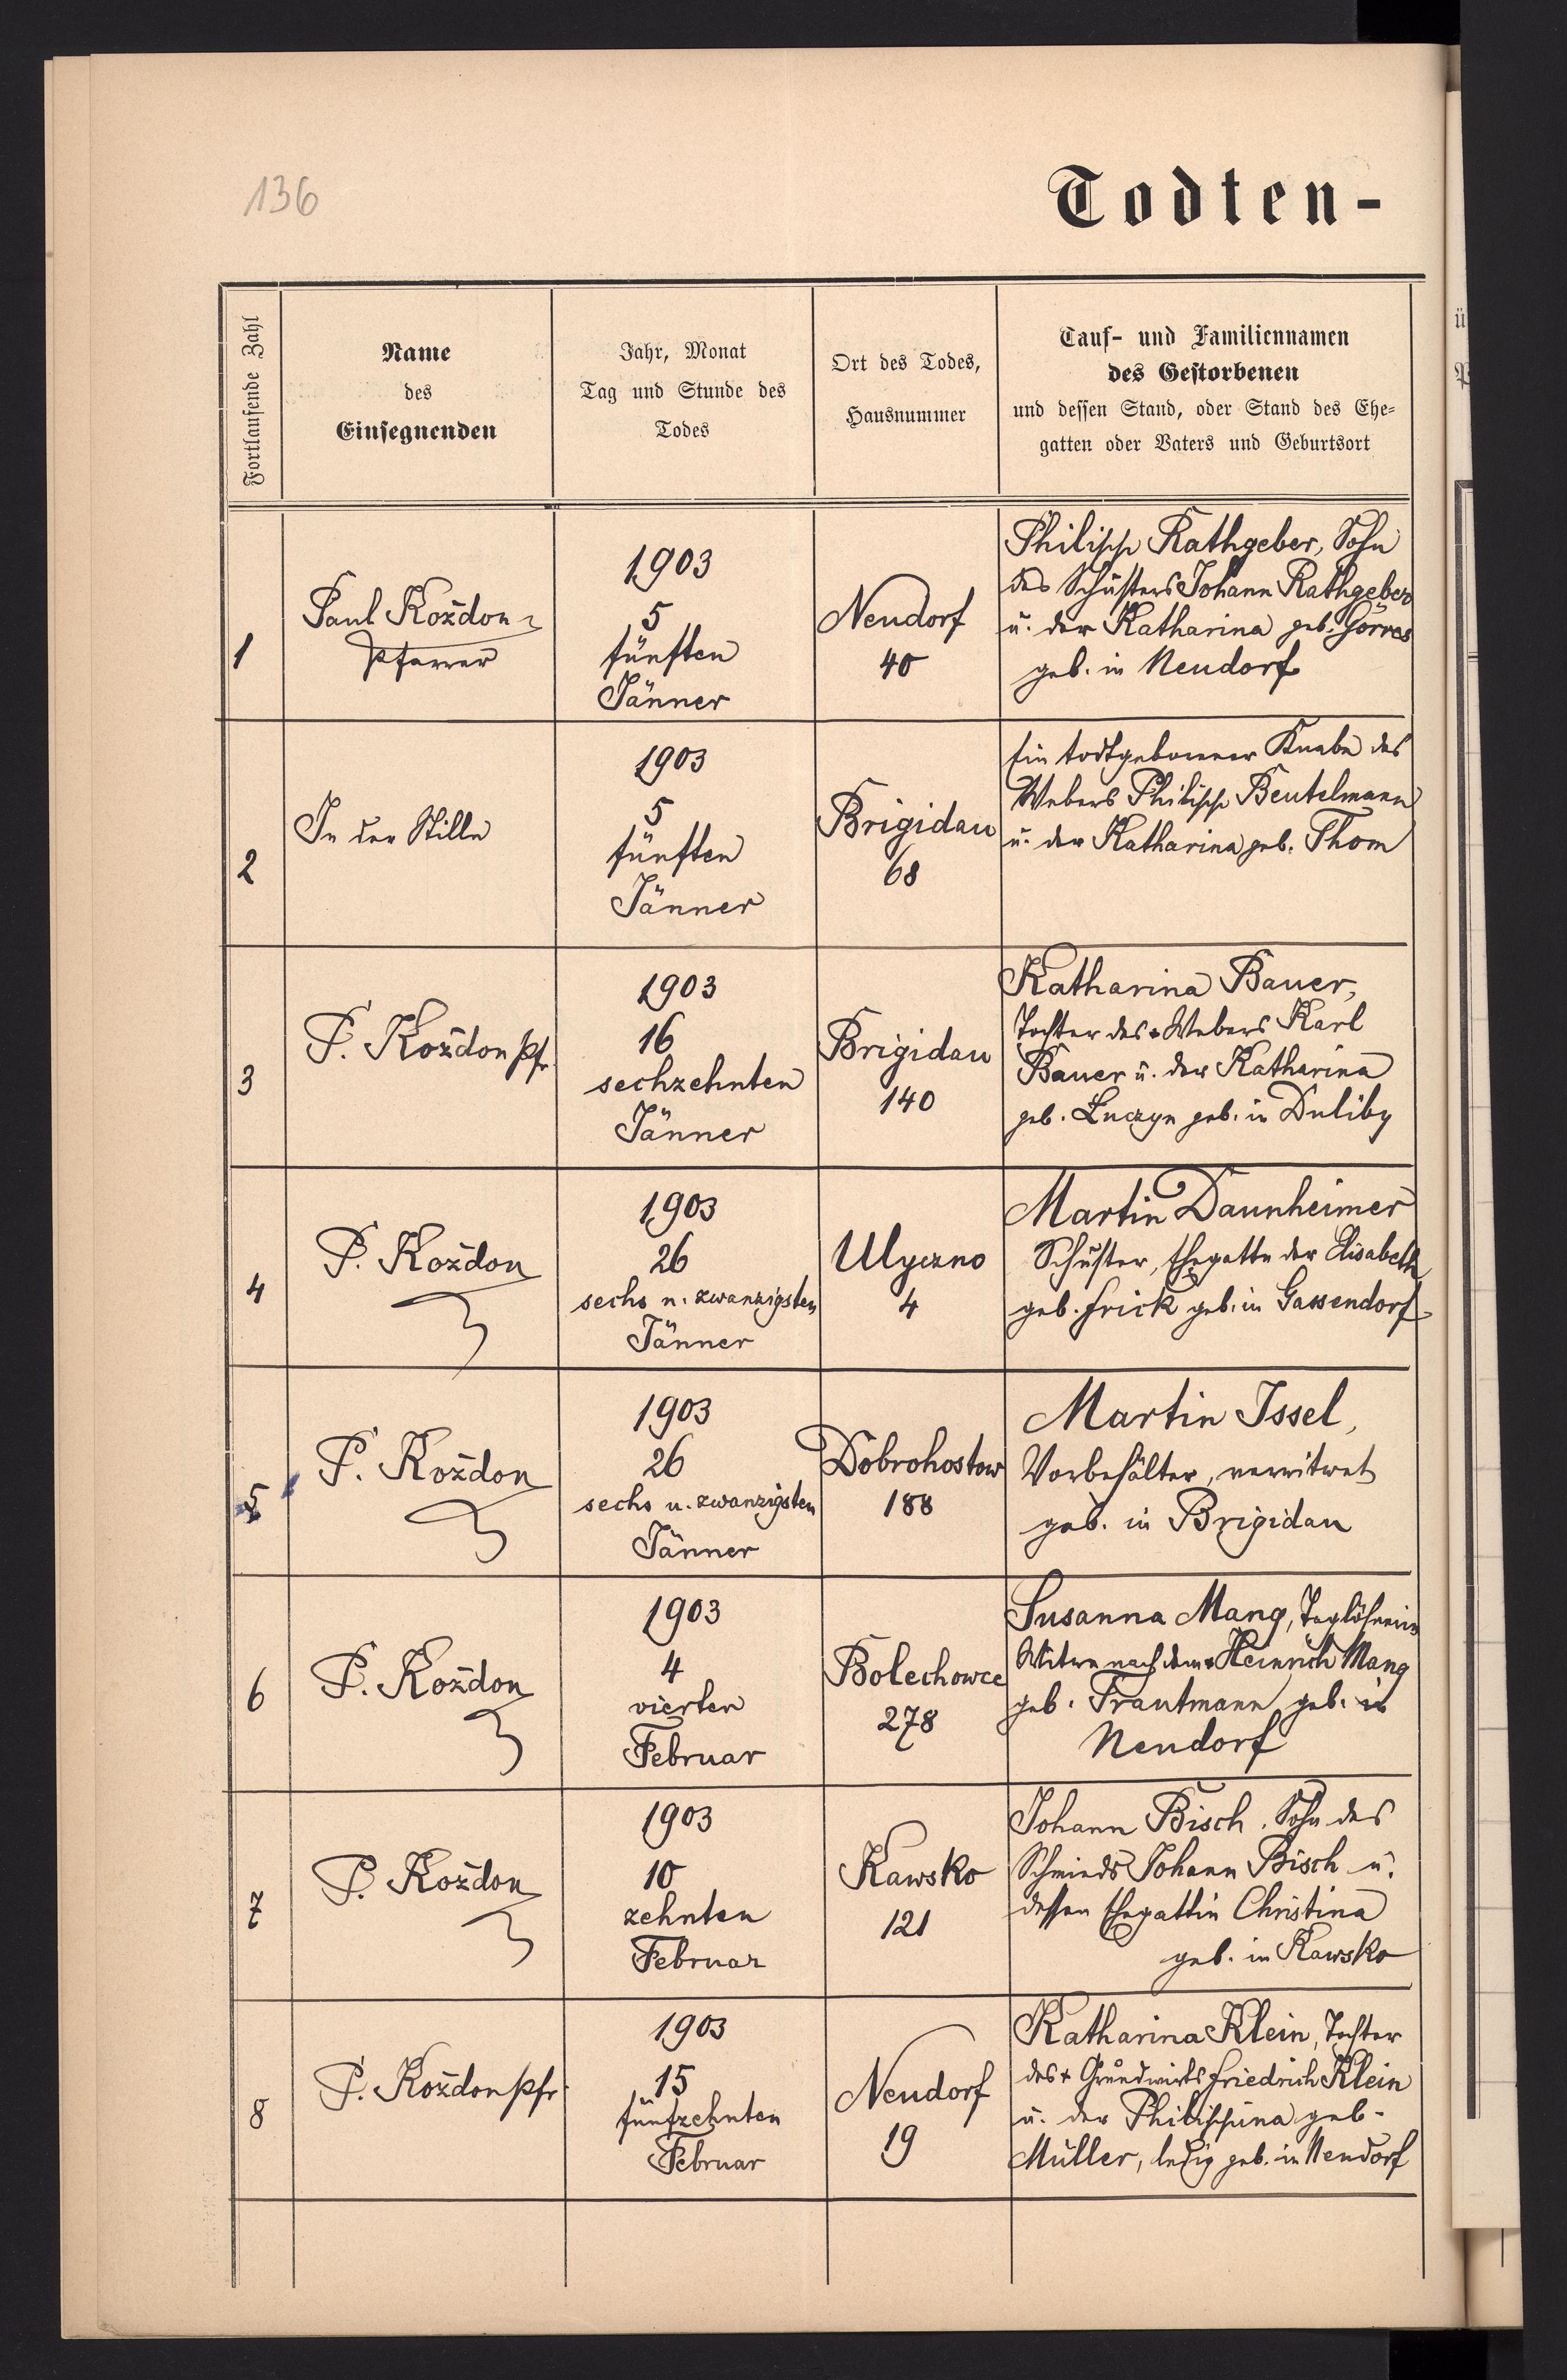 136
Todten-
Fortlaufende Zahl
Name
des
Einsegnenden
Jahr, Monat
Tag und Stunde des
Todes
Ort des Todes,
Hausnummer
Tauf- und Familiennamen
des Gestorbenen
und dessen Stand, oder Stand des Ehe-
gatten oder Vaters und Geburtsort
1
Paul Koždon
Pfarrer
1903
5
fünften
Jänner
Neudorf
40
Philipp Rathgeber, Sohn
des Schusters Johann Rathgeber
u. der Katharina geb. Görres
geb. in Neudorf
2
In der Stille
1903
5
fünften
Jänner
Brigidau
68
Ein todtgeborener Knabe des
Webers Philipp Beutelmann
u. der Katharina geb. Thom
3
P. Koždon Pfr
1903
16
sechzehnten
Jänner
Brigidau
140
Katharina Bauer,
Tochter des + Webers Karl
Bauer u. der Katharina
geb. Luczyn geb. in Duliby
4
P. Koždon
1903
26
sechs u. zwanzigsten
Jänner
Ulyczno
4
Martin Daunheimer
Schuster, Ehegatte der Elisabeth
geb. Frick geb. in Gassendorf
5
P. Koždon
1903
26
sechs u. zwanzigsten
Jänner
Dobrohostow
188
Martin Issel,
Vorbehälter, verwitwet
geb. in Brigidau
6
P. Koždon
1903
4
vierten
Februar
Bolechowce
278
Susanna Mang, Taglöhnerin
Witwe nach dem + Heinrich Mang
geb. Trautmann geb. in
Neudorf
7
P. Koždon
1903
10
zehnten
Februar
Kawsko
121
Johann Bisch, Sohn des
Schmieds Johann Bisch u.
dessen Ehegattin Christina
geb. in Kawsko
8
P. Koždon Pfr
1903
15
fünfzehnten
Februar
Neudorf
19
Katharina Klein, Tochter
des + Grundwirts Friedrich Klein
u. der Philippina geb.
Müller, ledig geb. in Neudorf